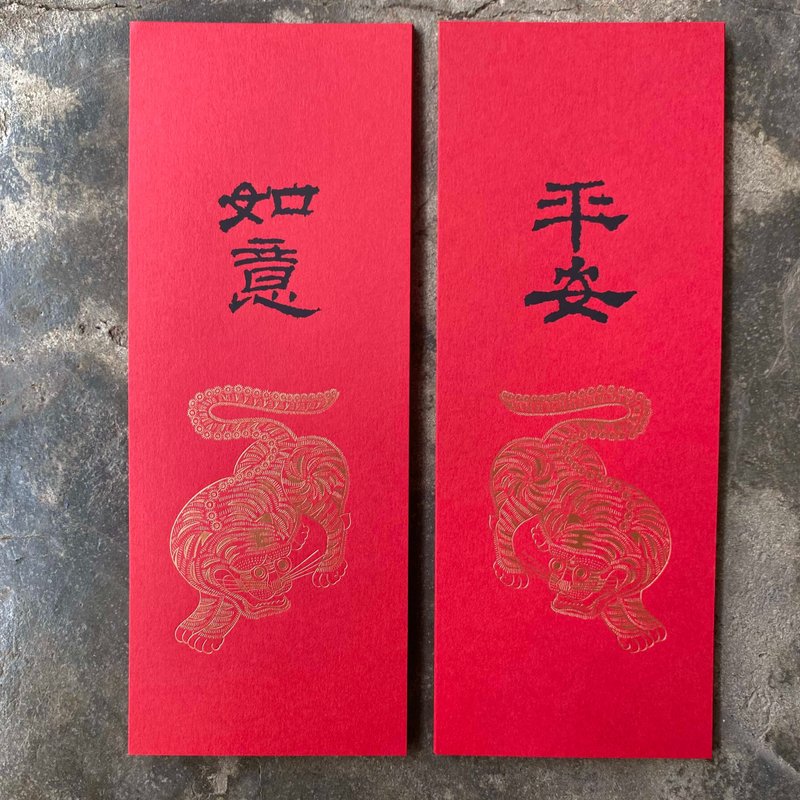 如意
平安